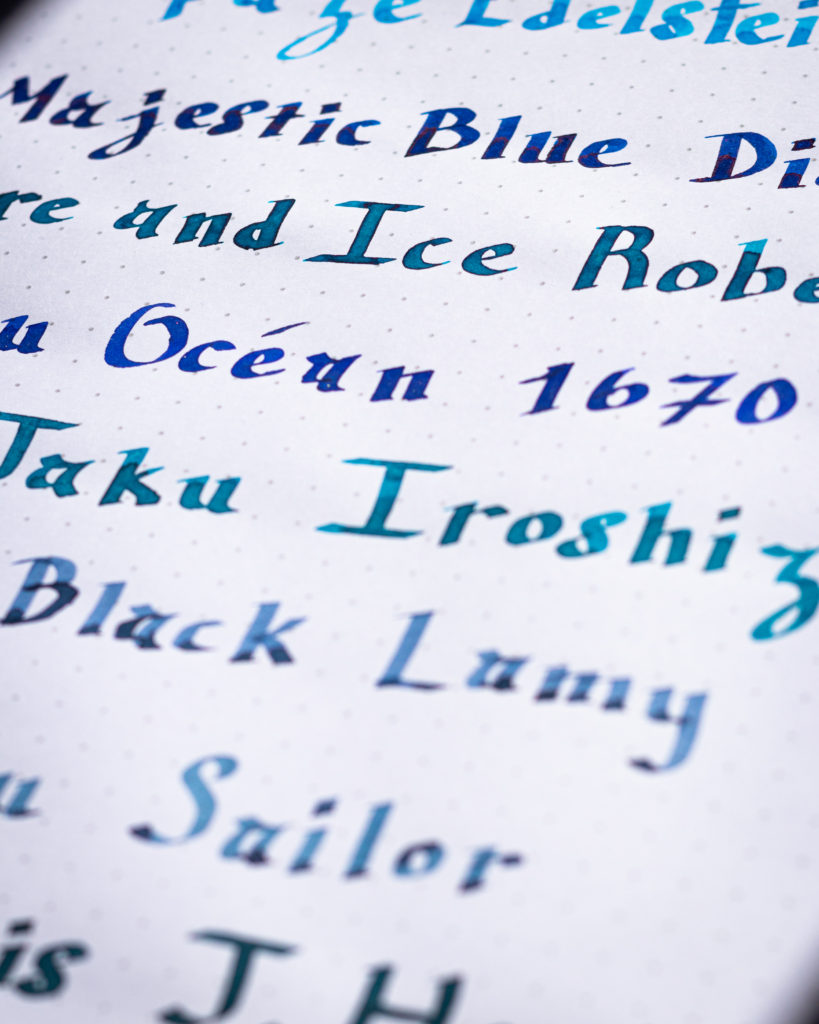 Edelstei
Majestic Blue Di
re and Ice Robe
u Océan 1670
Jaku Iroshiz
Black Lamy
u Sailor
is J H